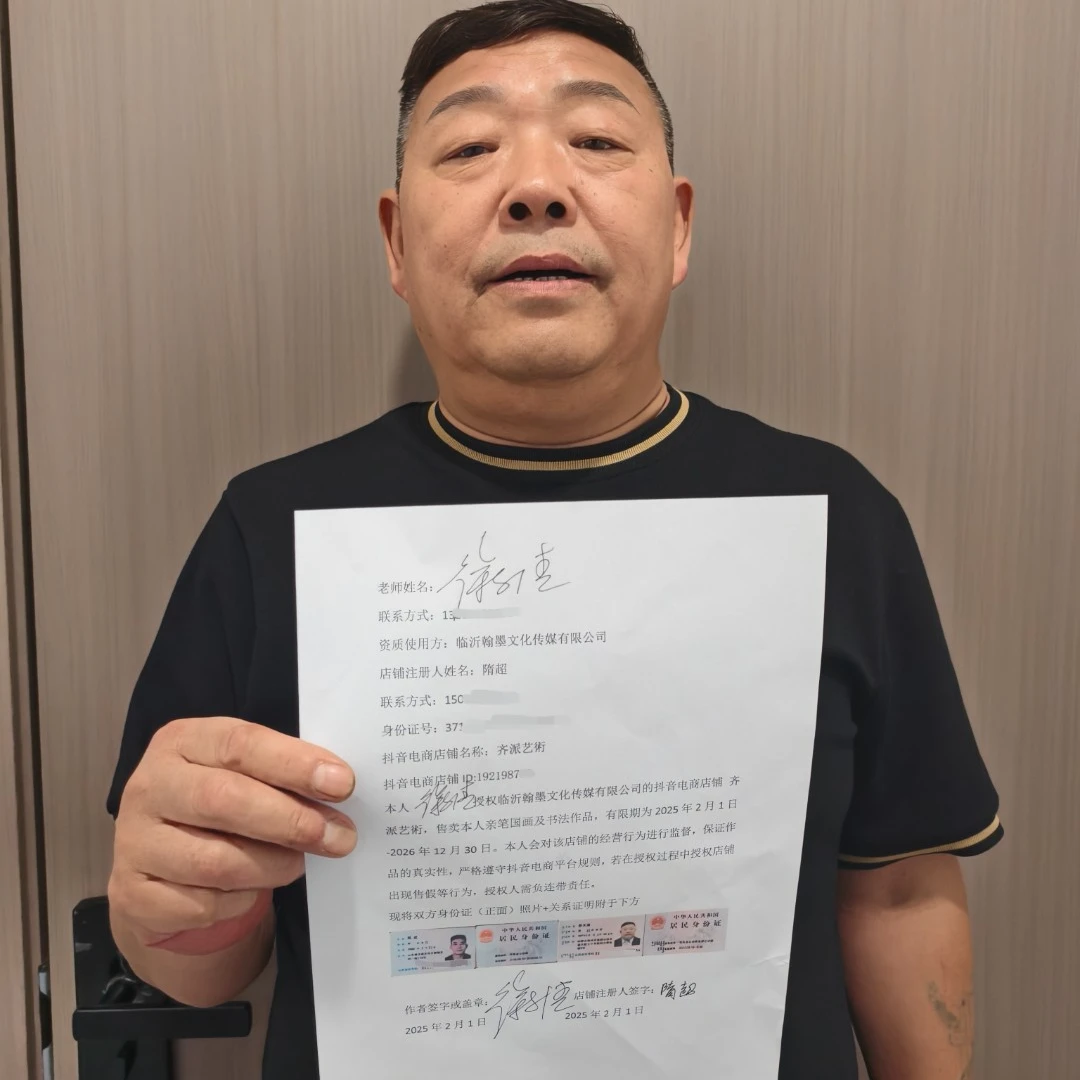 老师姓名：徐
联系方式：1
资质使用方：临沂翰墨文化传媒有限公司
店铺注册人姓名：隋超
联系方式：150
身份证号：37
抖音电商店铺名称：齐派艺術
抖音电商店铺 ID:1921987
本人 徐 授权临沂翰墨文化传媒有限公司的抖音电商店铺 齐
派艺術，售卖本人亲笔国画及书法作品，有限期为 2025 年 2 月 1 日
-2026 年 12 月 30 日。本人会对该店铺的经营行为进行监督，保证作
品的真实性，严格遵守抖音电商平台规则，若在授权过程中授权店铺
出现售假等行为，授权人需负连带责任。
现将双方身份证（正面）照片+关系证明附于下方
中华人民共和国
居民身份证
中华人民共和国
居民身份证
作者签字或盖章：徐 店铺注册人签字：隋超
2025 年 2 月 1 日 2025 年 2 月 1 日